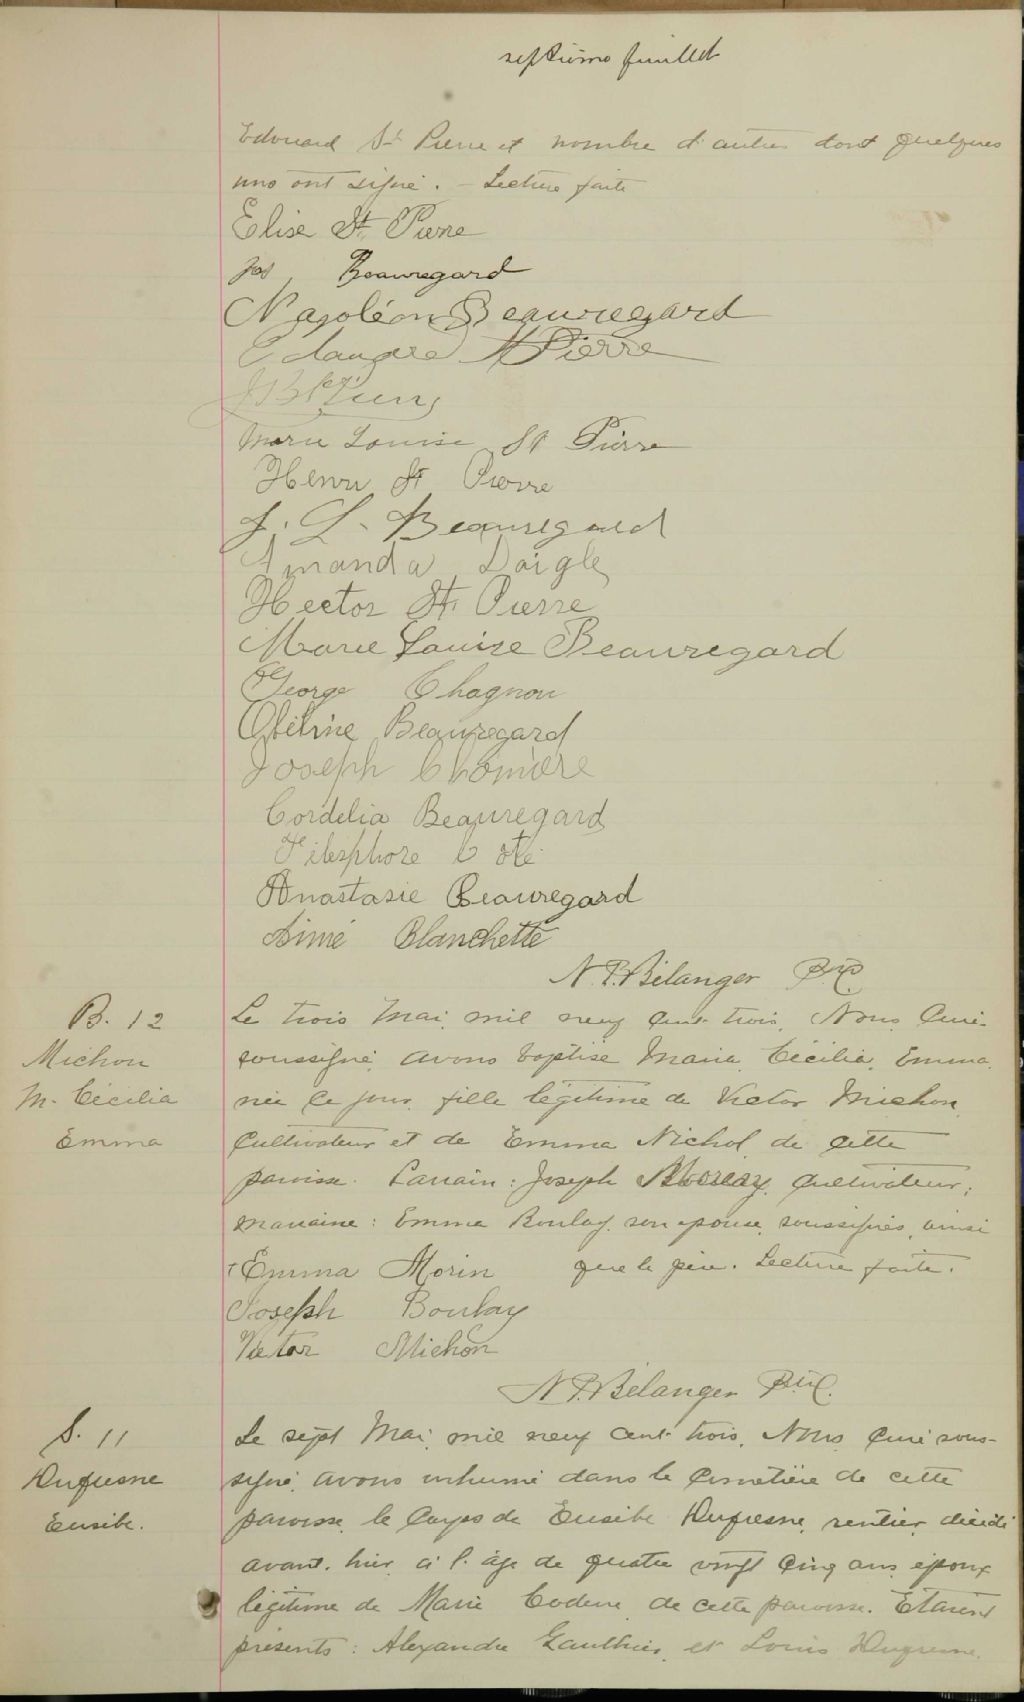 septième feuillet
Edouard St Pierre et nombre d'autres dont quelques
uns ont signé. - Lecture faite
Elise St. Pierre
Jos. Beauregard
Napoléon Beauregard
St Pierre
Marie Louise St Pierre
Henri St Pierre
J. L. Beauregard
Amanda Daigle
Hector St. Pierre
Marie Louise Beauregard
George Chagnon
Beauregard
Joseph
Cordelia Beauregard
Télesphore Coté
Anastasie Beauregard
Aimé Blanchette
N. P. Bélanger Ptre
B. 12
Michon
M. Cécilia
Emma
Le trois Mai, mil neuf cent trois, Nous Curé
soussigné, avons baptisé Maria, Cécilia, Emma,
née ce jour, fille légitime de Victor Michon,
Cultivateur et de Emma Nichol, de cette
paroisse. Parrain: Joseph cultivateur;
marraine: Emma Boulay, son épouse, soussignés, ainsi
que le père. Lecture faite.
Emma Morin
Joseph Boulay
Victor Michon
N. P. Bélanger Ptre C.
S. 11
Dufresne
Eusèbe.
Le sept Mai, mil neuf cent trois, Nous, Curé sous-
signé, avons inhumé dans le Cimetière de cette
paroisse, le Corps de Eusèbe Dufresne, rentier, décédé
avant-hier, à l'âge de quatre vingt cinq ans, époux
légitime de Marie de cette paroisse. Etaient
présents: Alexandre Gauthier, et Louis Dufresne.